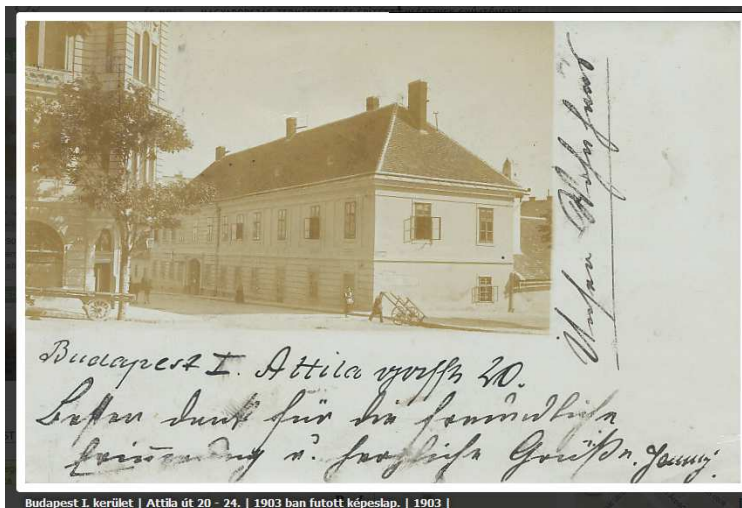 Unser Wohnhaus
Budapest I. Attila gasse 20.
Besten dank für die freundliche
Erinnerung u. herzliche Grüße. Jenny.
Budapest I. kerület | Attila út 20 - 24. | 1903 ban futott képeslap. | 1903 |